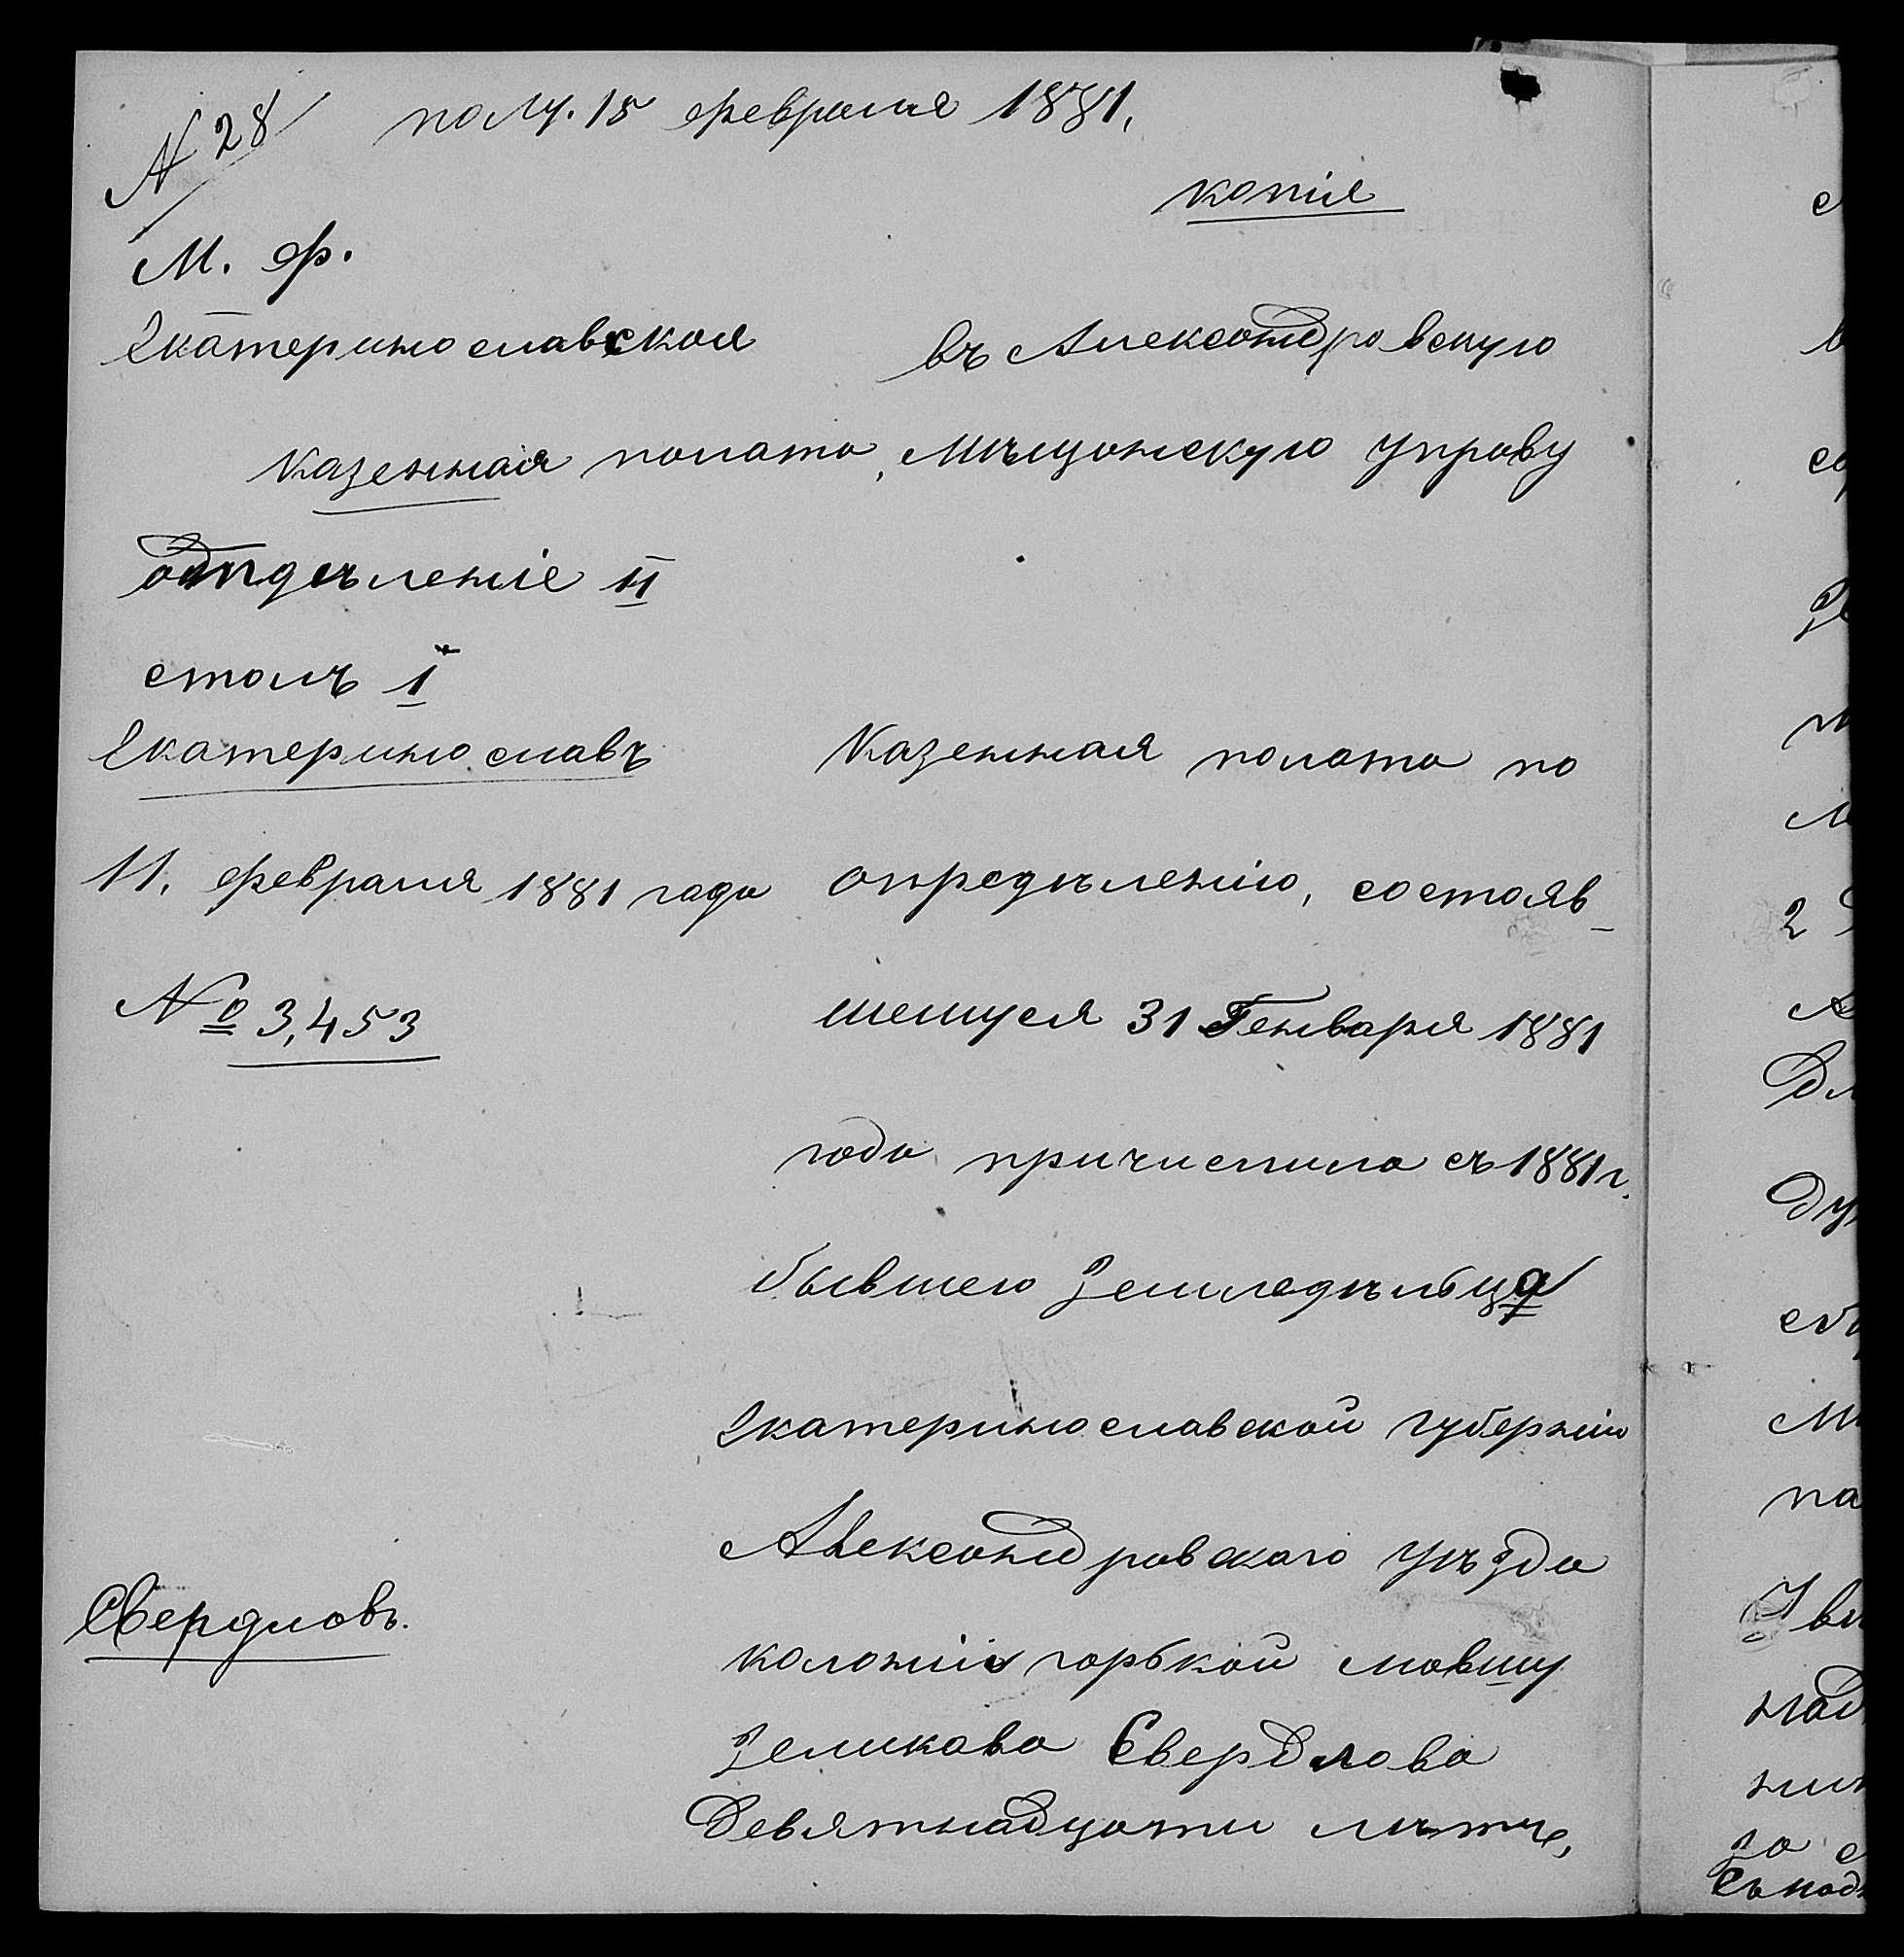 N 28 полу. 15 февраля 1881.
копія
М. Ф.
Екатеринославская
казенная полата,
отдѣленіе II
столъ I
Екатеринославъ
11. февраля 1881 года
№ 3,453
Свердловъ.
въ Александровскую
Мѣщанскую управу
Казенная полата по
опредѣленію, состояв-
шемуся 31 Генваря 1881
года причислила съ 1881 г.
бывшего земледѣльца
Екатеринославской губерніи
Александровского уѣзда
колоніи горькой мовшу
Зеликова Свердлова
Девятнадцати лѣтъ,